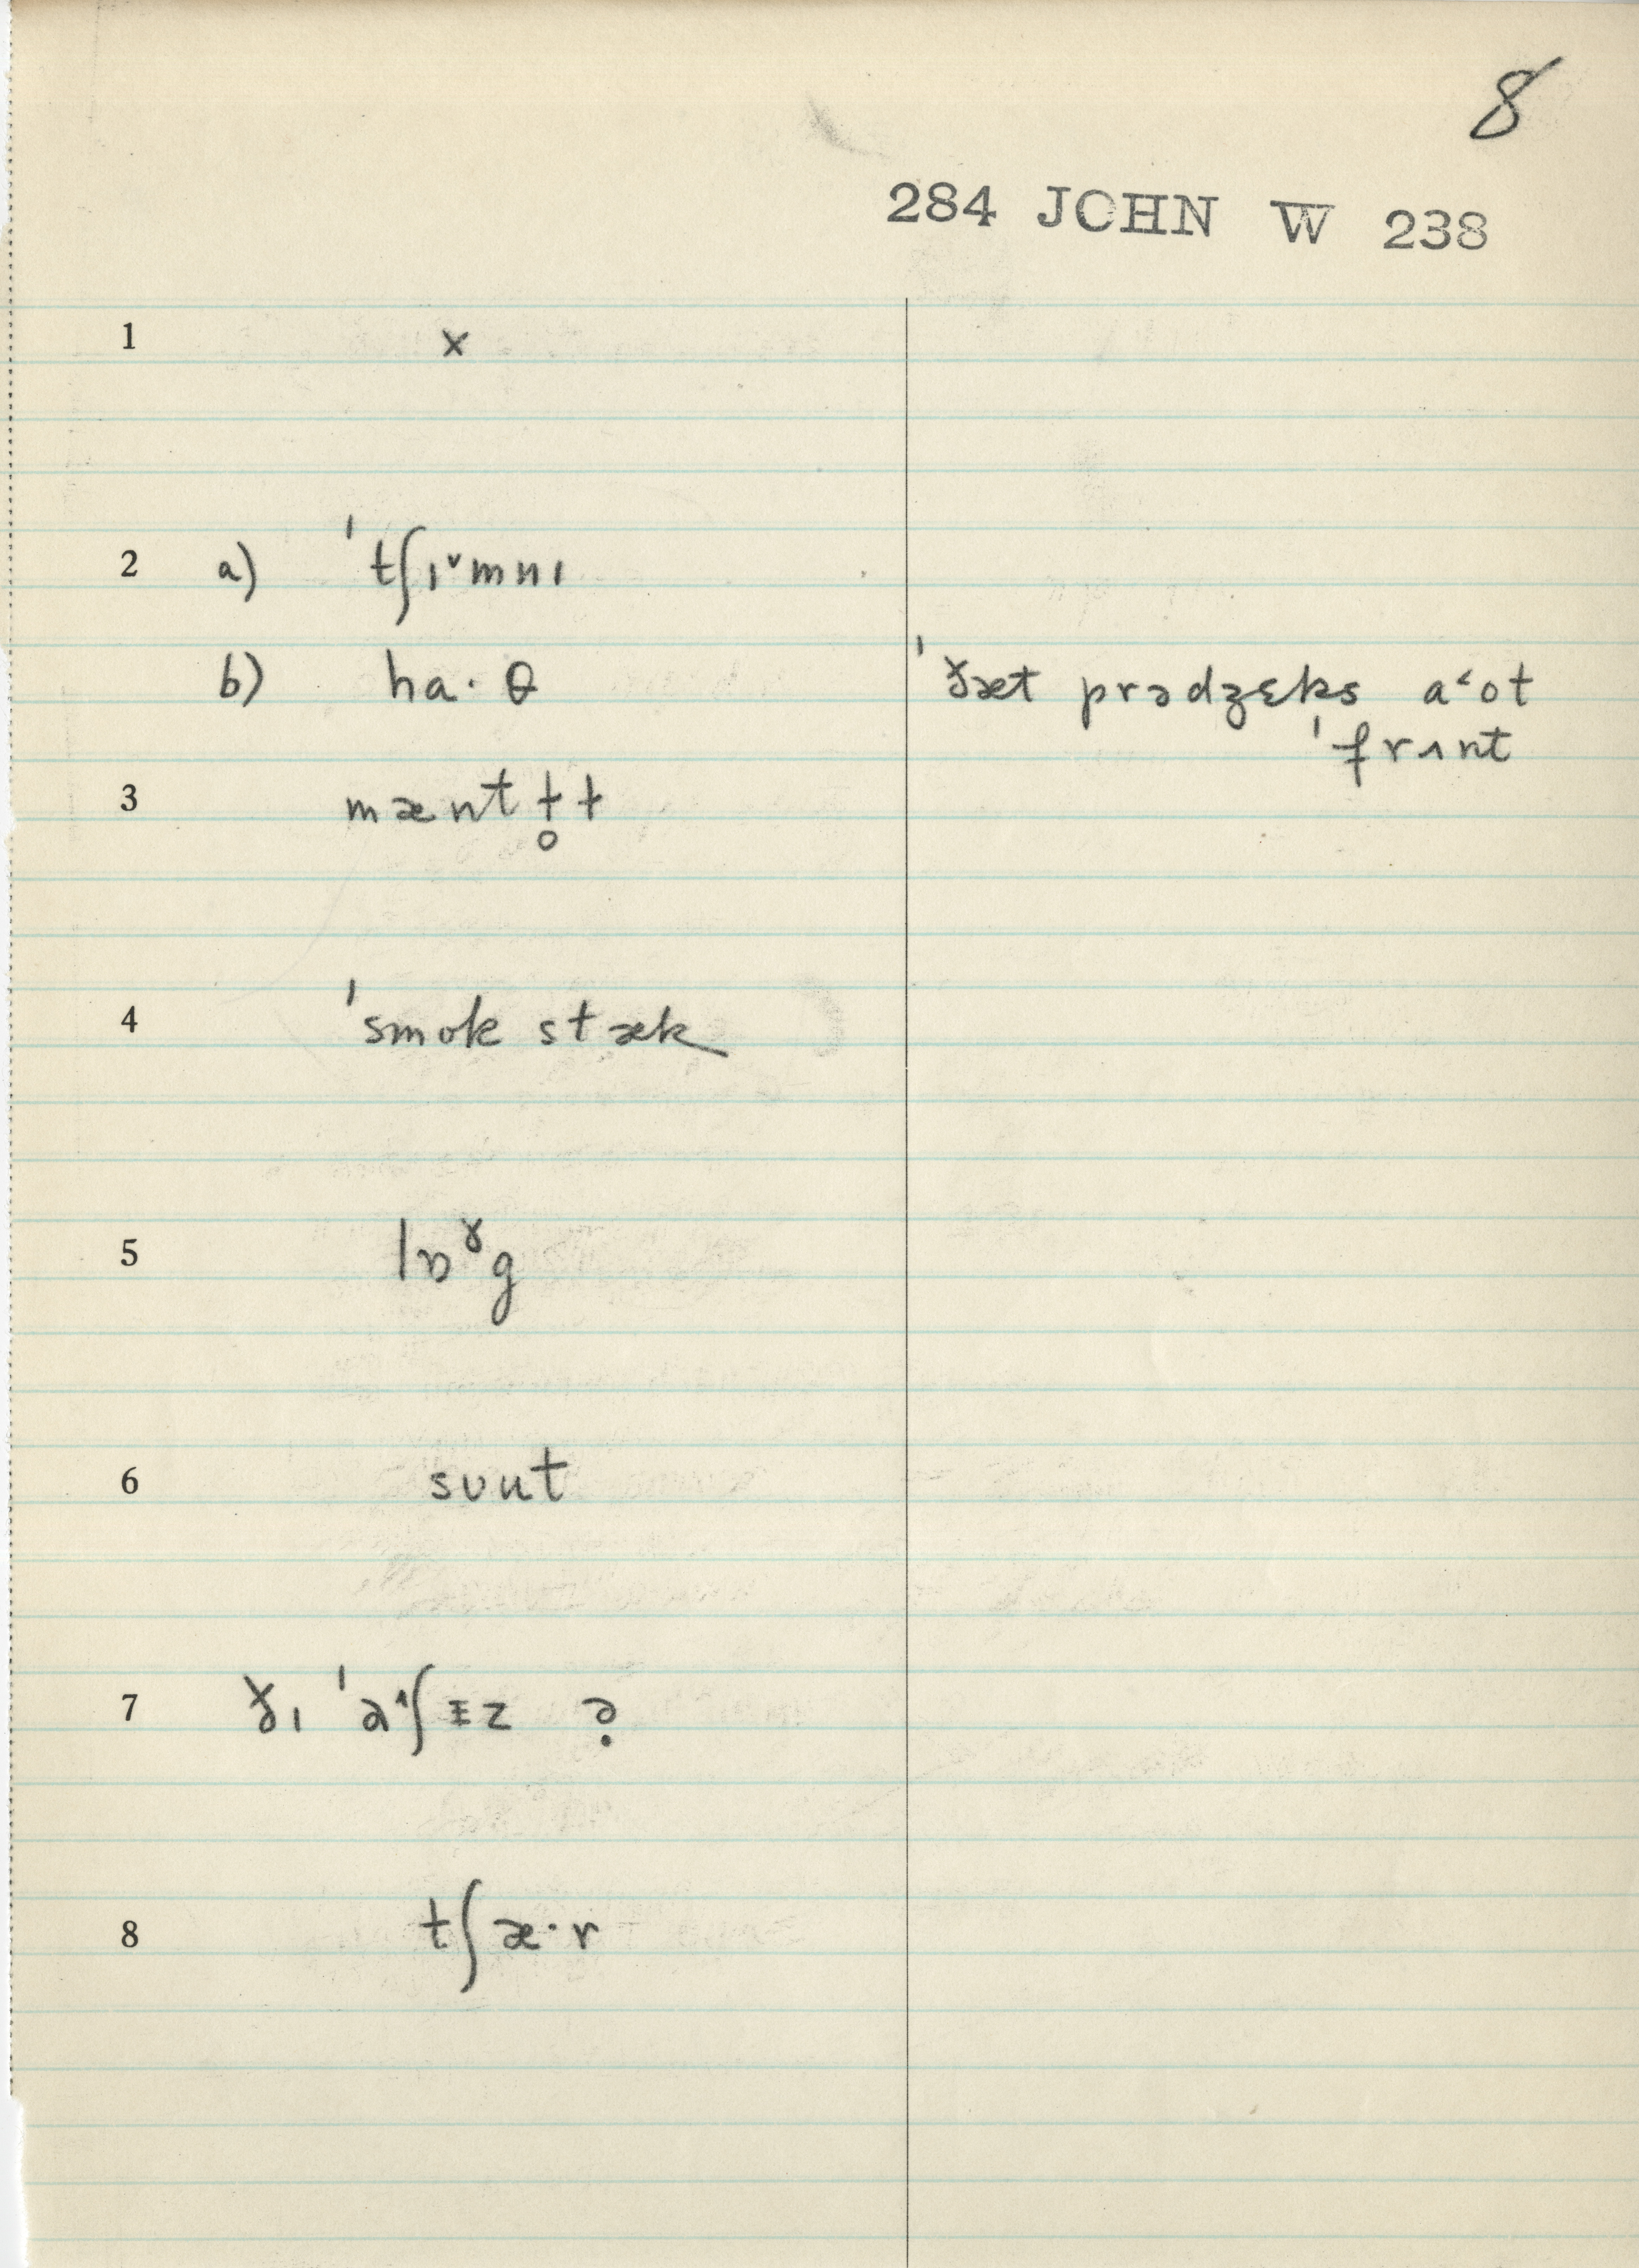 8
284 JOHN W 238
1 x
2 a) ˈtʃɪ˅mnɪ
b) ha·θ ˈðæt prədʒɛks a˂ot
ˈfrʌnt
3 mænt ɫ̥ ɫ
4 ˈsmok stæk
5 lɒᵞg
6 sʊut
7 ðɪ ˈa˄ʃɪz ə̣
8 tʃæ·r